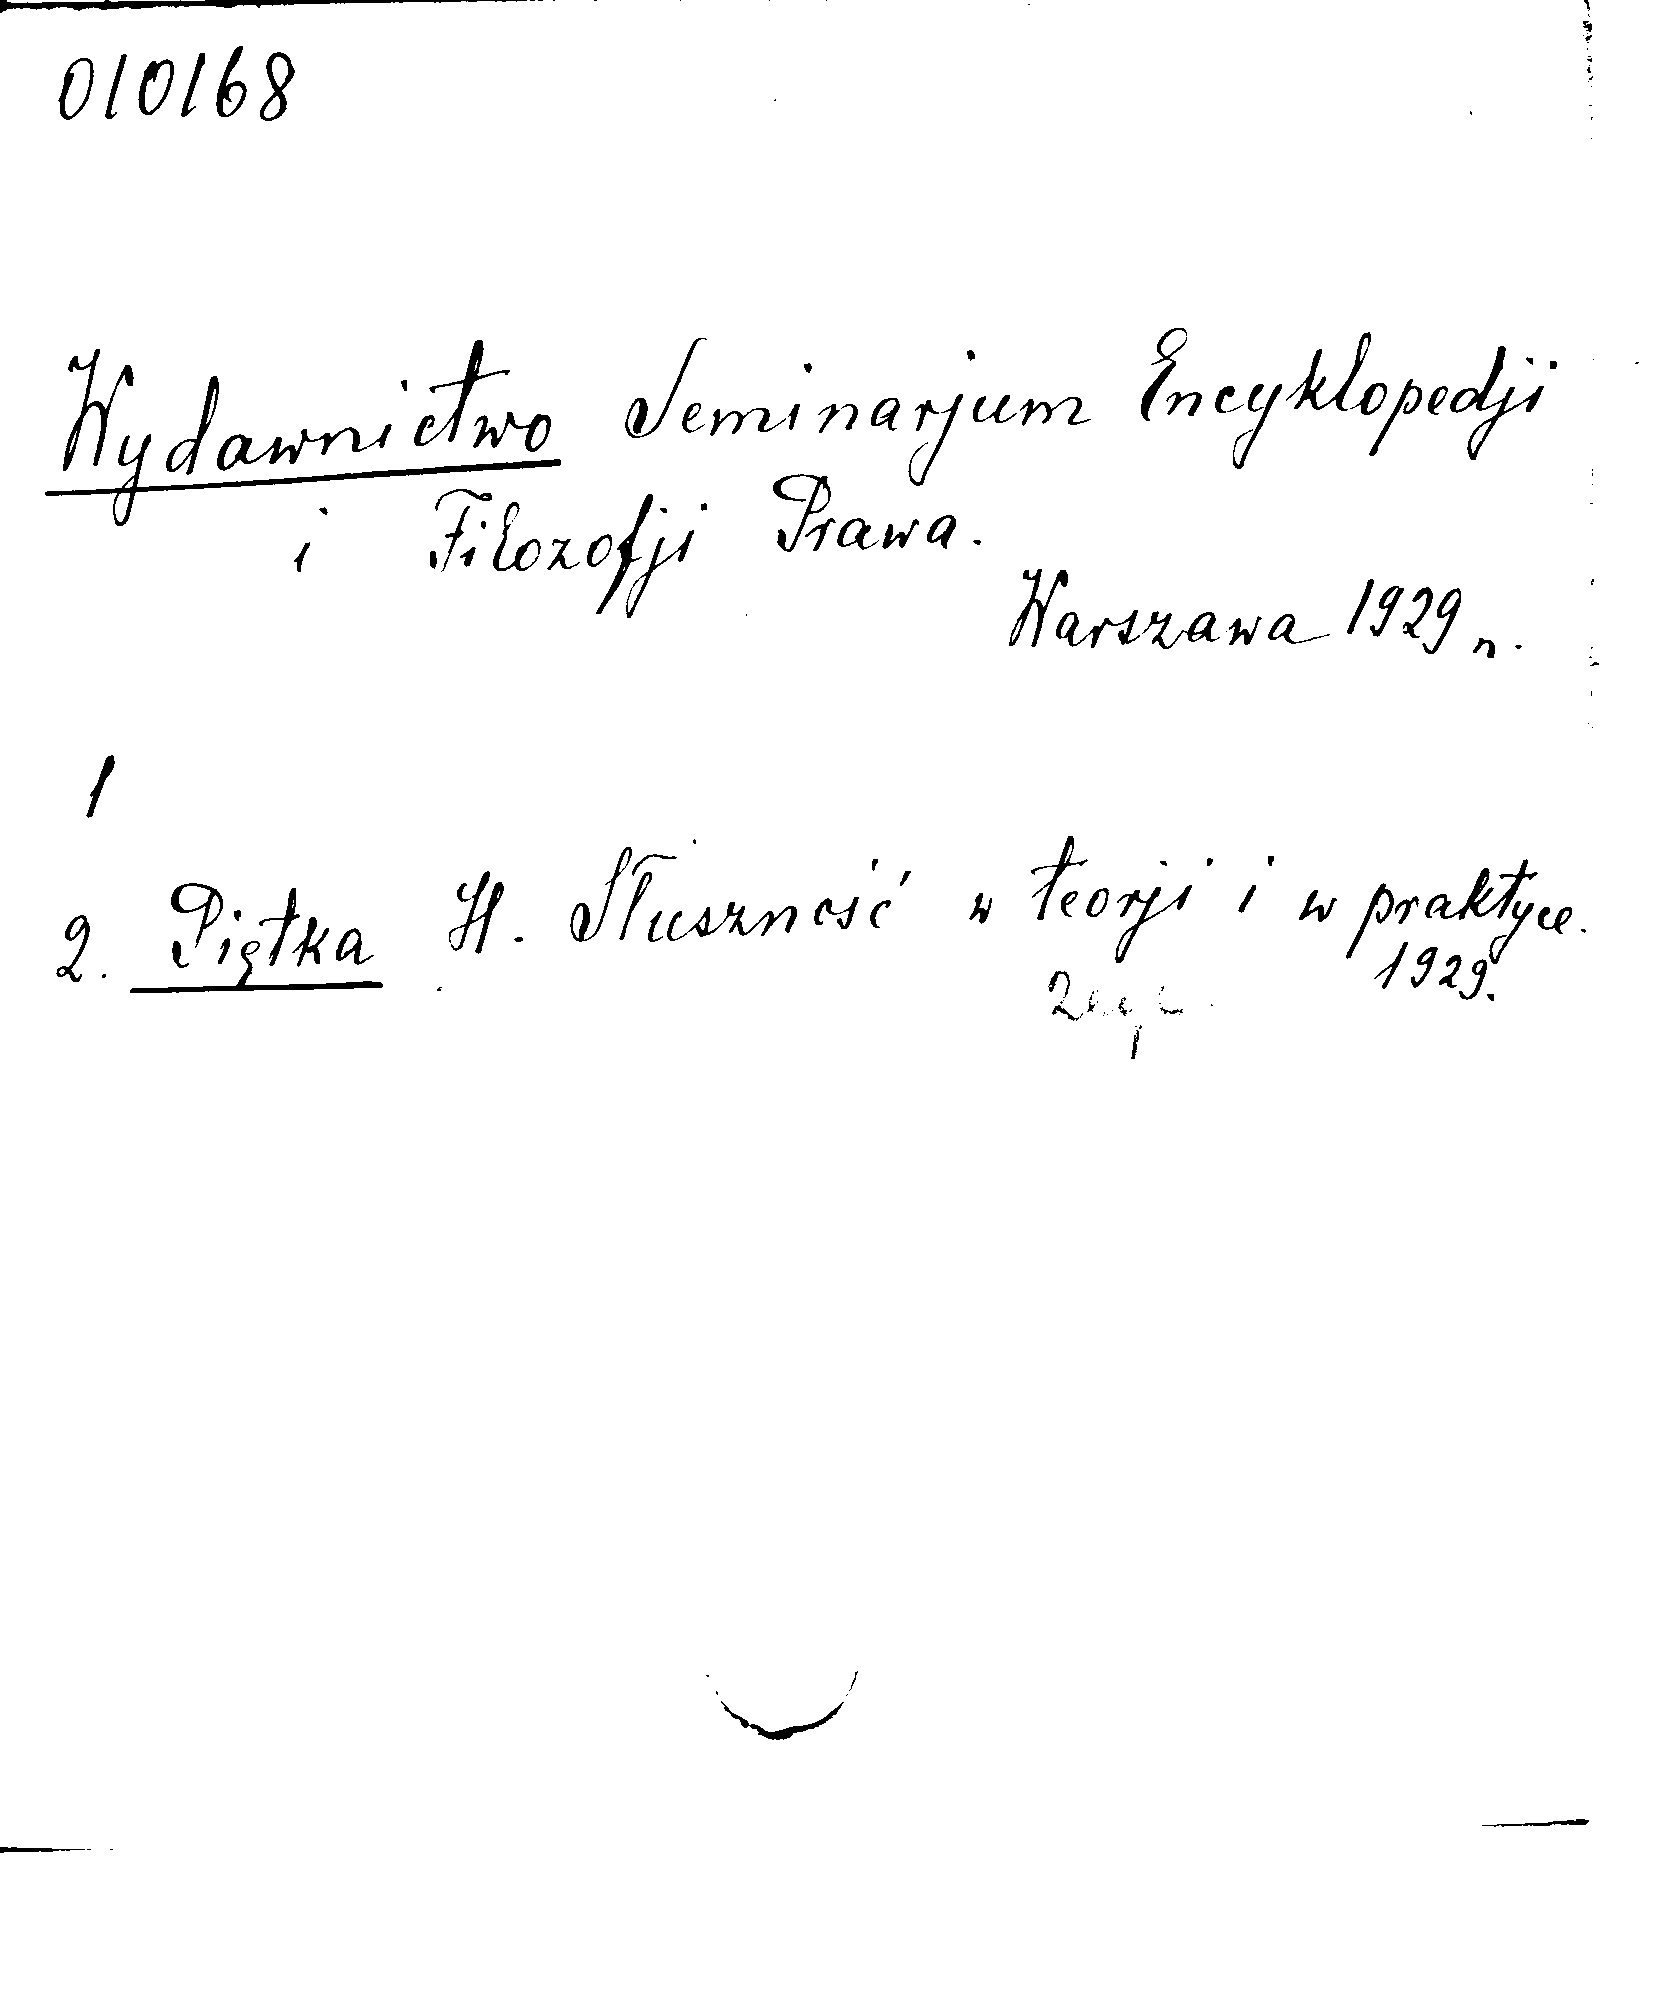 010168
Wydawnictwo Seminarjum Encyklopedji
i Filozofji Prawa.
Warszawa 1929 r.
1
2. Piętka H. Słuszność w teorji i w praktyce.
1929.